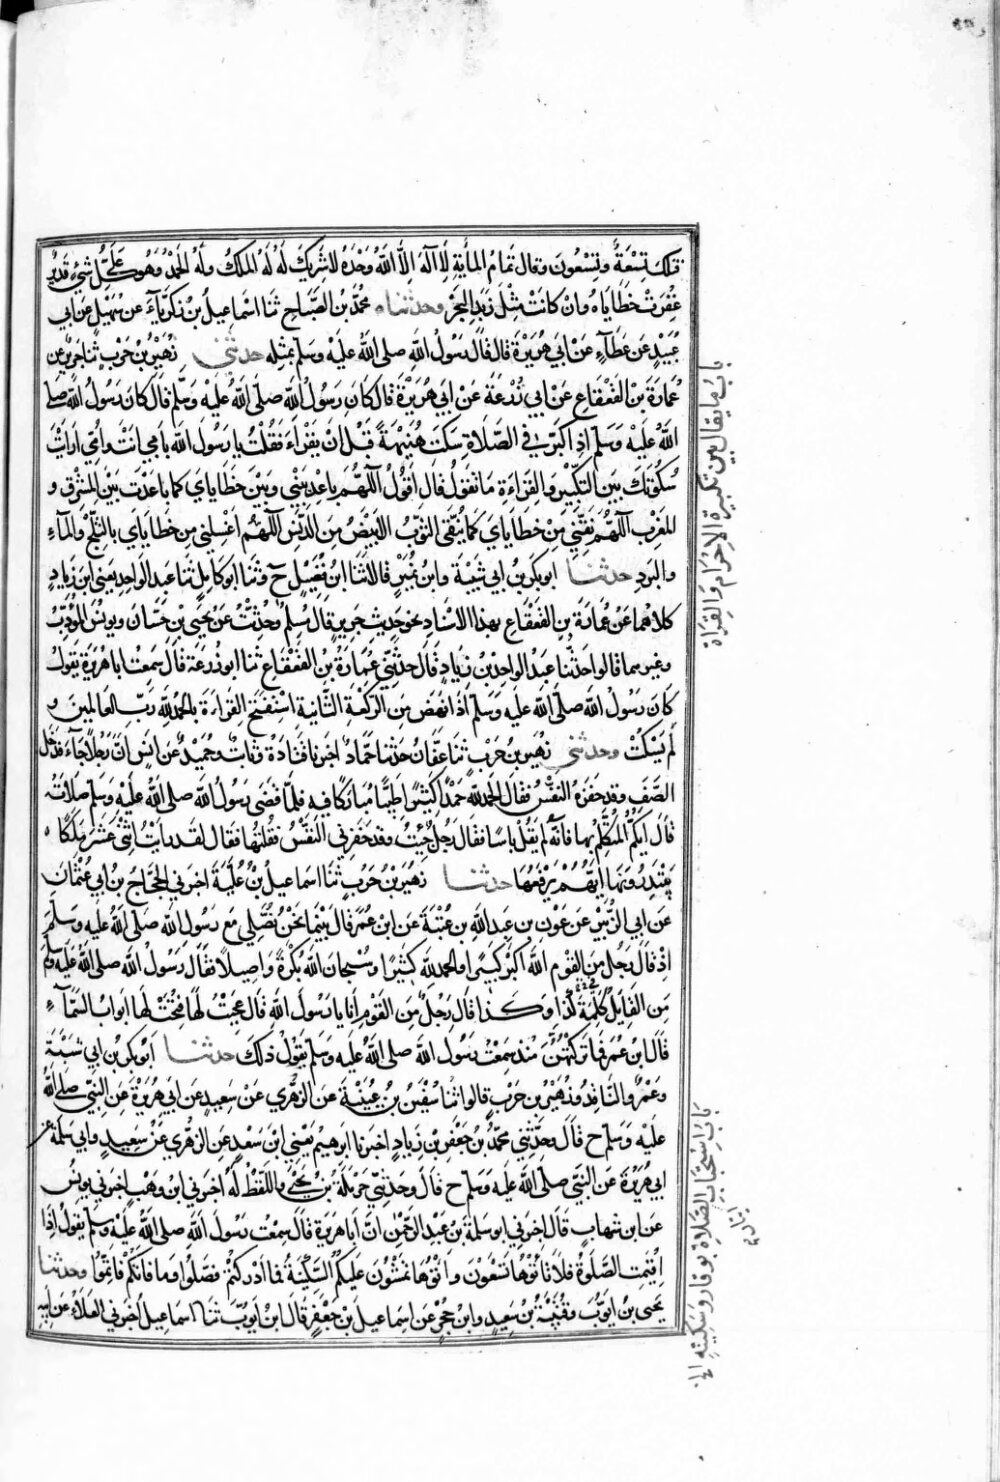 فتلك تسعة وتسعون وقال تمام المأية لا اله الا الله وحده لا شريك له له الملك وله الحمد وهو على كل شيء قدير
غفرت خطاياه وان كانت مثل زبد البحر وحدثناه محمد بن الصباح ثنا اسماعيل بن زكرياء عن سهيل عن ابي
عبيد عن عطاء عن ابي هريرة قال قال رسول الله صلى الله عليه وسلم بمثله حدثني زهير بن حرب ثنا جرير عن
عمارة بن القعقاع عن ابي زرعة عن ابي هريرة قال كان رسول الله صلى الله عليه وسلم قال كان رسول الله صلى
الله عليه وسلم اذا كبر في الصلاة سكت هنيهة قبل ان يقراء فقلت يا رسول الله بابي انت وامي ارايت
سكوتك بين التكبير والقراءة ما تقول قال اقول اللهم باعد بيني وبين خطاياي كما باعدت بين المشرق و
المغرب اللهم نقني من خطاياي كما ينقى الثوب الابيض من الدنس اللهم اغسلني من خطاياي بالثلج والماء
والبرد حدثنا ابو بكر بن ابي شيبة وابن نمير قالا ثنا ابن فضيل ح وثنا ابو كامل ثنا عبد الواحد يعني ابن زياد
كلاهما عن عمارة بن القعقاع بهذا الاسناد نحو حديث جرير قال مسلم وحدثت عن يحيى بن حسان ويونس المؤدب
وغيرهما قالوا حدثنا عبد الواحد بن زياد قال حدثني عمارة بن القعقاع ثنا ابو زرعة قال سمعت ابا هريرة يقول
كان رسول الله صلى الله عليه وسلم اذا نهض من الركعة الثانية استفتح القراءة بالحمد لله رب العالمين و
لم يسكت وحدثني زهير بن حرب ثنا عفان حدثنا حماد اخبرنا قتادة وثابت وحميد عن انس ان رجلا جاء فدخل
الصف وقد حفزه النفس فقال الحمد لله حمدا كثيرا طيبا مباركا فيه فلما قضى رسول الله صلى الله عليه وسلم صلاته
قال ايكم المتكلم بها فانه لم يقل باسا فقال رجل جئت وقد حفزني النفس فقلتها فقال لقد رايت اثني عشر ملكا
يبتدرونها ايهم يرفعها حدثنا زهير بن حرب ثنا اسماعيل بن علية اخبرني الحجاج بن ابي عثمان
عن ابي الزبير عن عون بن عبد الله بن عتبة عن ابن عمر قال بينما نحن نصلي مع رسول الله صلى الله عليه وسلم
اذ قال رجل من القوم الله اكبر كبيرا والحمد لله كثيرا وسبحان الله بكرة واصيلا فقال رسول الله صلى الله عليه وسلم
من القايل كلمة كذا وكذا قال رجل من القوم انا يا رسول الله قال عجبت لها فتحت لها ابواب السماء
قال ابن عمر فما تركتهن منذ سمعت رسول الله صلى الله عليه وسلم يقول ذلك حدثنا ابو بكر بن ابي شيبة
وعمرو الناقد وزهير بن حرب قالوا ثنا سفين بن عيينة عن الزهري عن سعيد عن ابي هريرة عن النبي صلى الله
عليه وسلم ح قال وحدثني محمد بن جعفر بن زياد اخبرنا ابرهيم يعني ابن سعد عن الزهري عن سعيد وابي سلمة عن
ابي هريرة عن النبي صلى الله عليه وسلم ح قال وحدثني حرملة بن يحيى واللفظ له اخبرني ابن وهب اخبرني يونس
عن ابن شهاب قال اخبرني ابو سلمة بن عبد الرحمن ان ابا هريرة قال سمعت رسول الله صلى الله عليه وسلم يقول اذا
اقيمت الصلوة فلا تاتوها تسعون واتوها تمشون عليكم السكينة فما ادركتم فصلوا وما فاتكم فاتموا وحدثنا
يحيى بن ايوب وقتيبة بن سعيد وابن حجر عن اسماعيل بن جعفر قال ابن ايوب ثنا اسماعيل اخبرني العلاء عن ابيه
باب ما يقال بين تكبيرة الاحرام والقراة
باب استحباب الصلاة بوقار وسكينة